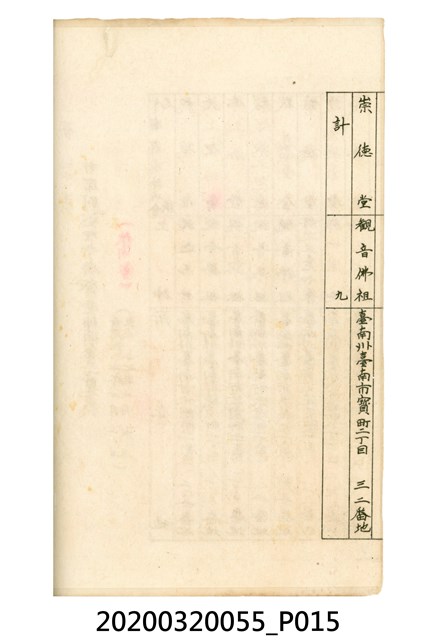 崇德堂 觀音佛祖 臺南州臺南市寶町二丁目 三二番地
計 九
20200320055_P015